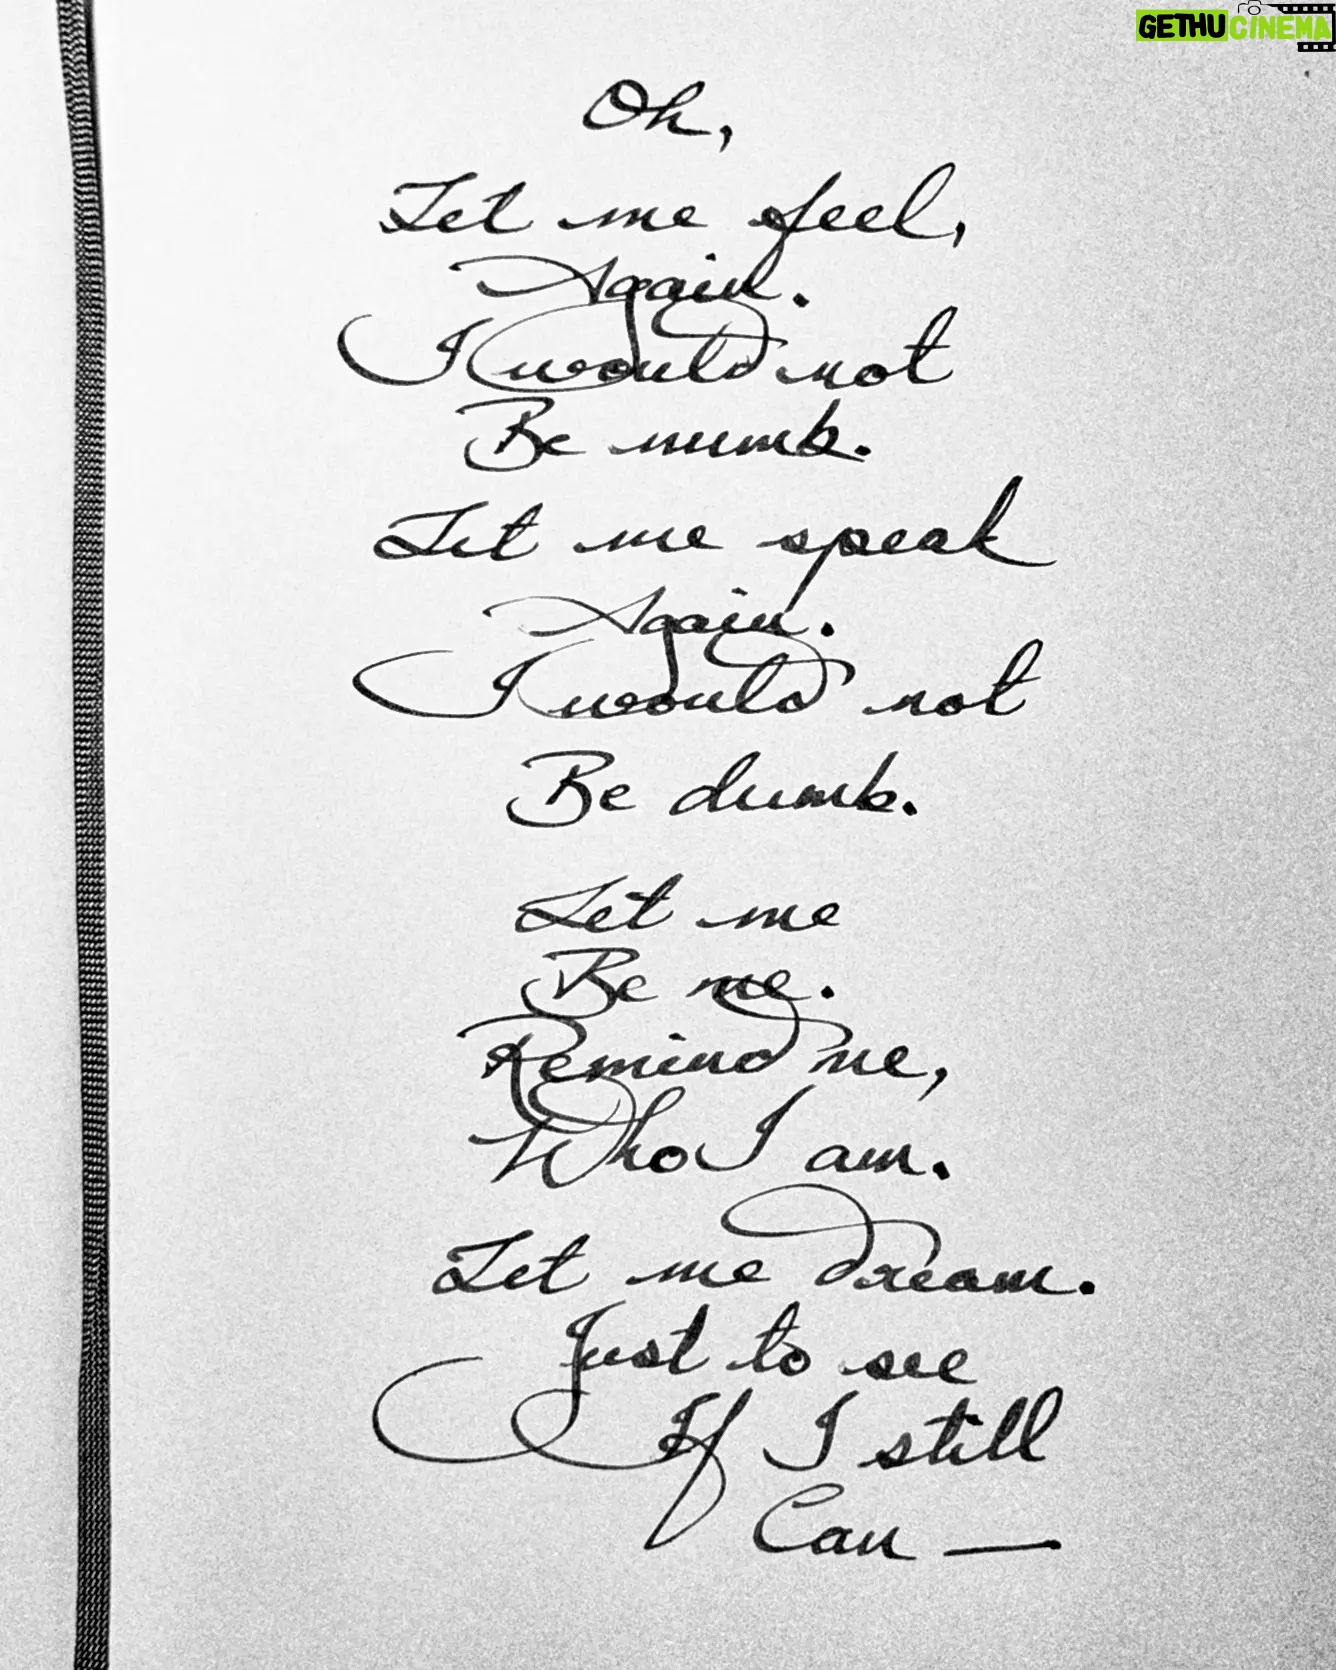 GETHUCINEMA
Oh,
Let me feel,
Again.
I would not
Be numb.
Let me speak
Again.
I would not
Be dumb.
Let me
Be me.
Remind me,
Who I am.
Let me dream.
Just to see
If I still
Can —